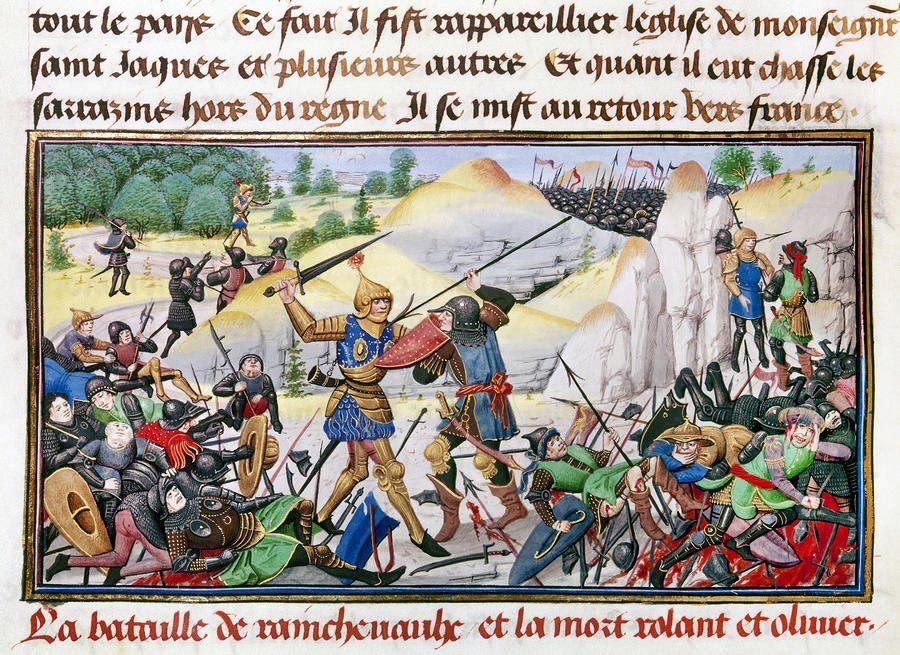 tout le pays Ce fait Il fist rappareillier leglise de monseignr
saint Jaques et plusieurs autres Et quant il eut chasse les
sarrazins hors du regne Il se mist au retour vers france.
La bataille de raincheuaulx et la mort rolant et oliuier.